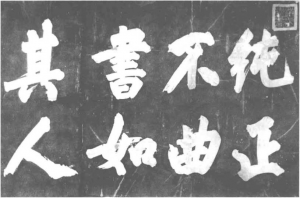 純正
不曲
書如
其人